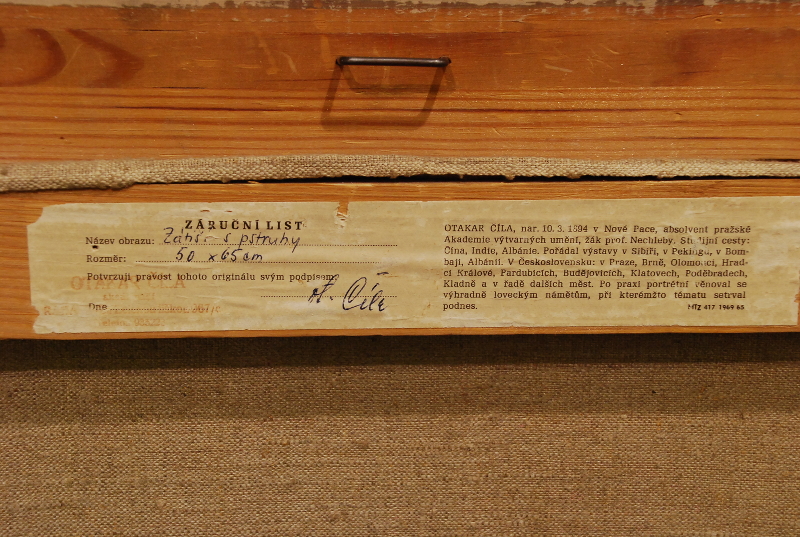 ZÁRUČNÍ LIST
Název obrazu: Zátiší s pstruhy
Rozměr: 50 x 65 cm
Potvrzuji pravost tohoto originálu svým podpisem
Ot. Číla
Dne
OTAKAR ČÍLA
OTAKAR ČÍLA, nar. 10. 3. 1894 v Nové Pace, absolvent pražské
Akademie výtvarných umění, žák prof. Nechleby. Studijní cesty:
Čína, Indie, Albánie. Pořádal výstavy v Sibiři, v Pekingu, v Bom-
baji, Albánii. V Československu: v Praze, Brně, Olomouci, Hrad-
ci Králové, Pardubicích, Budějovicích, Klatovech, Poděbradech,
Kladně a v řadě dalších měst. Po praxi portrétní věnoval se
výhradně loveckým námětům, při kterémžto tématu setrval
podnes.
MTZ 417 1969 65